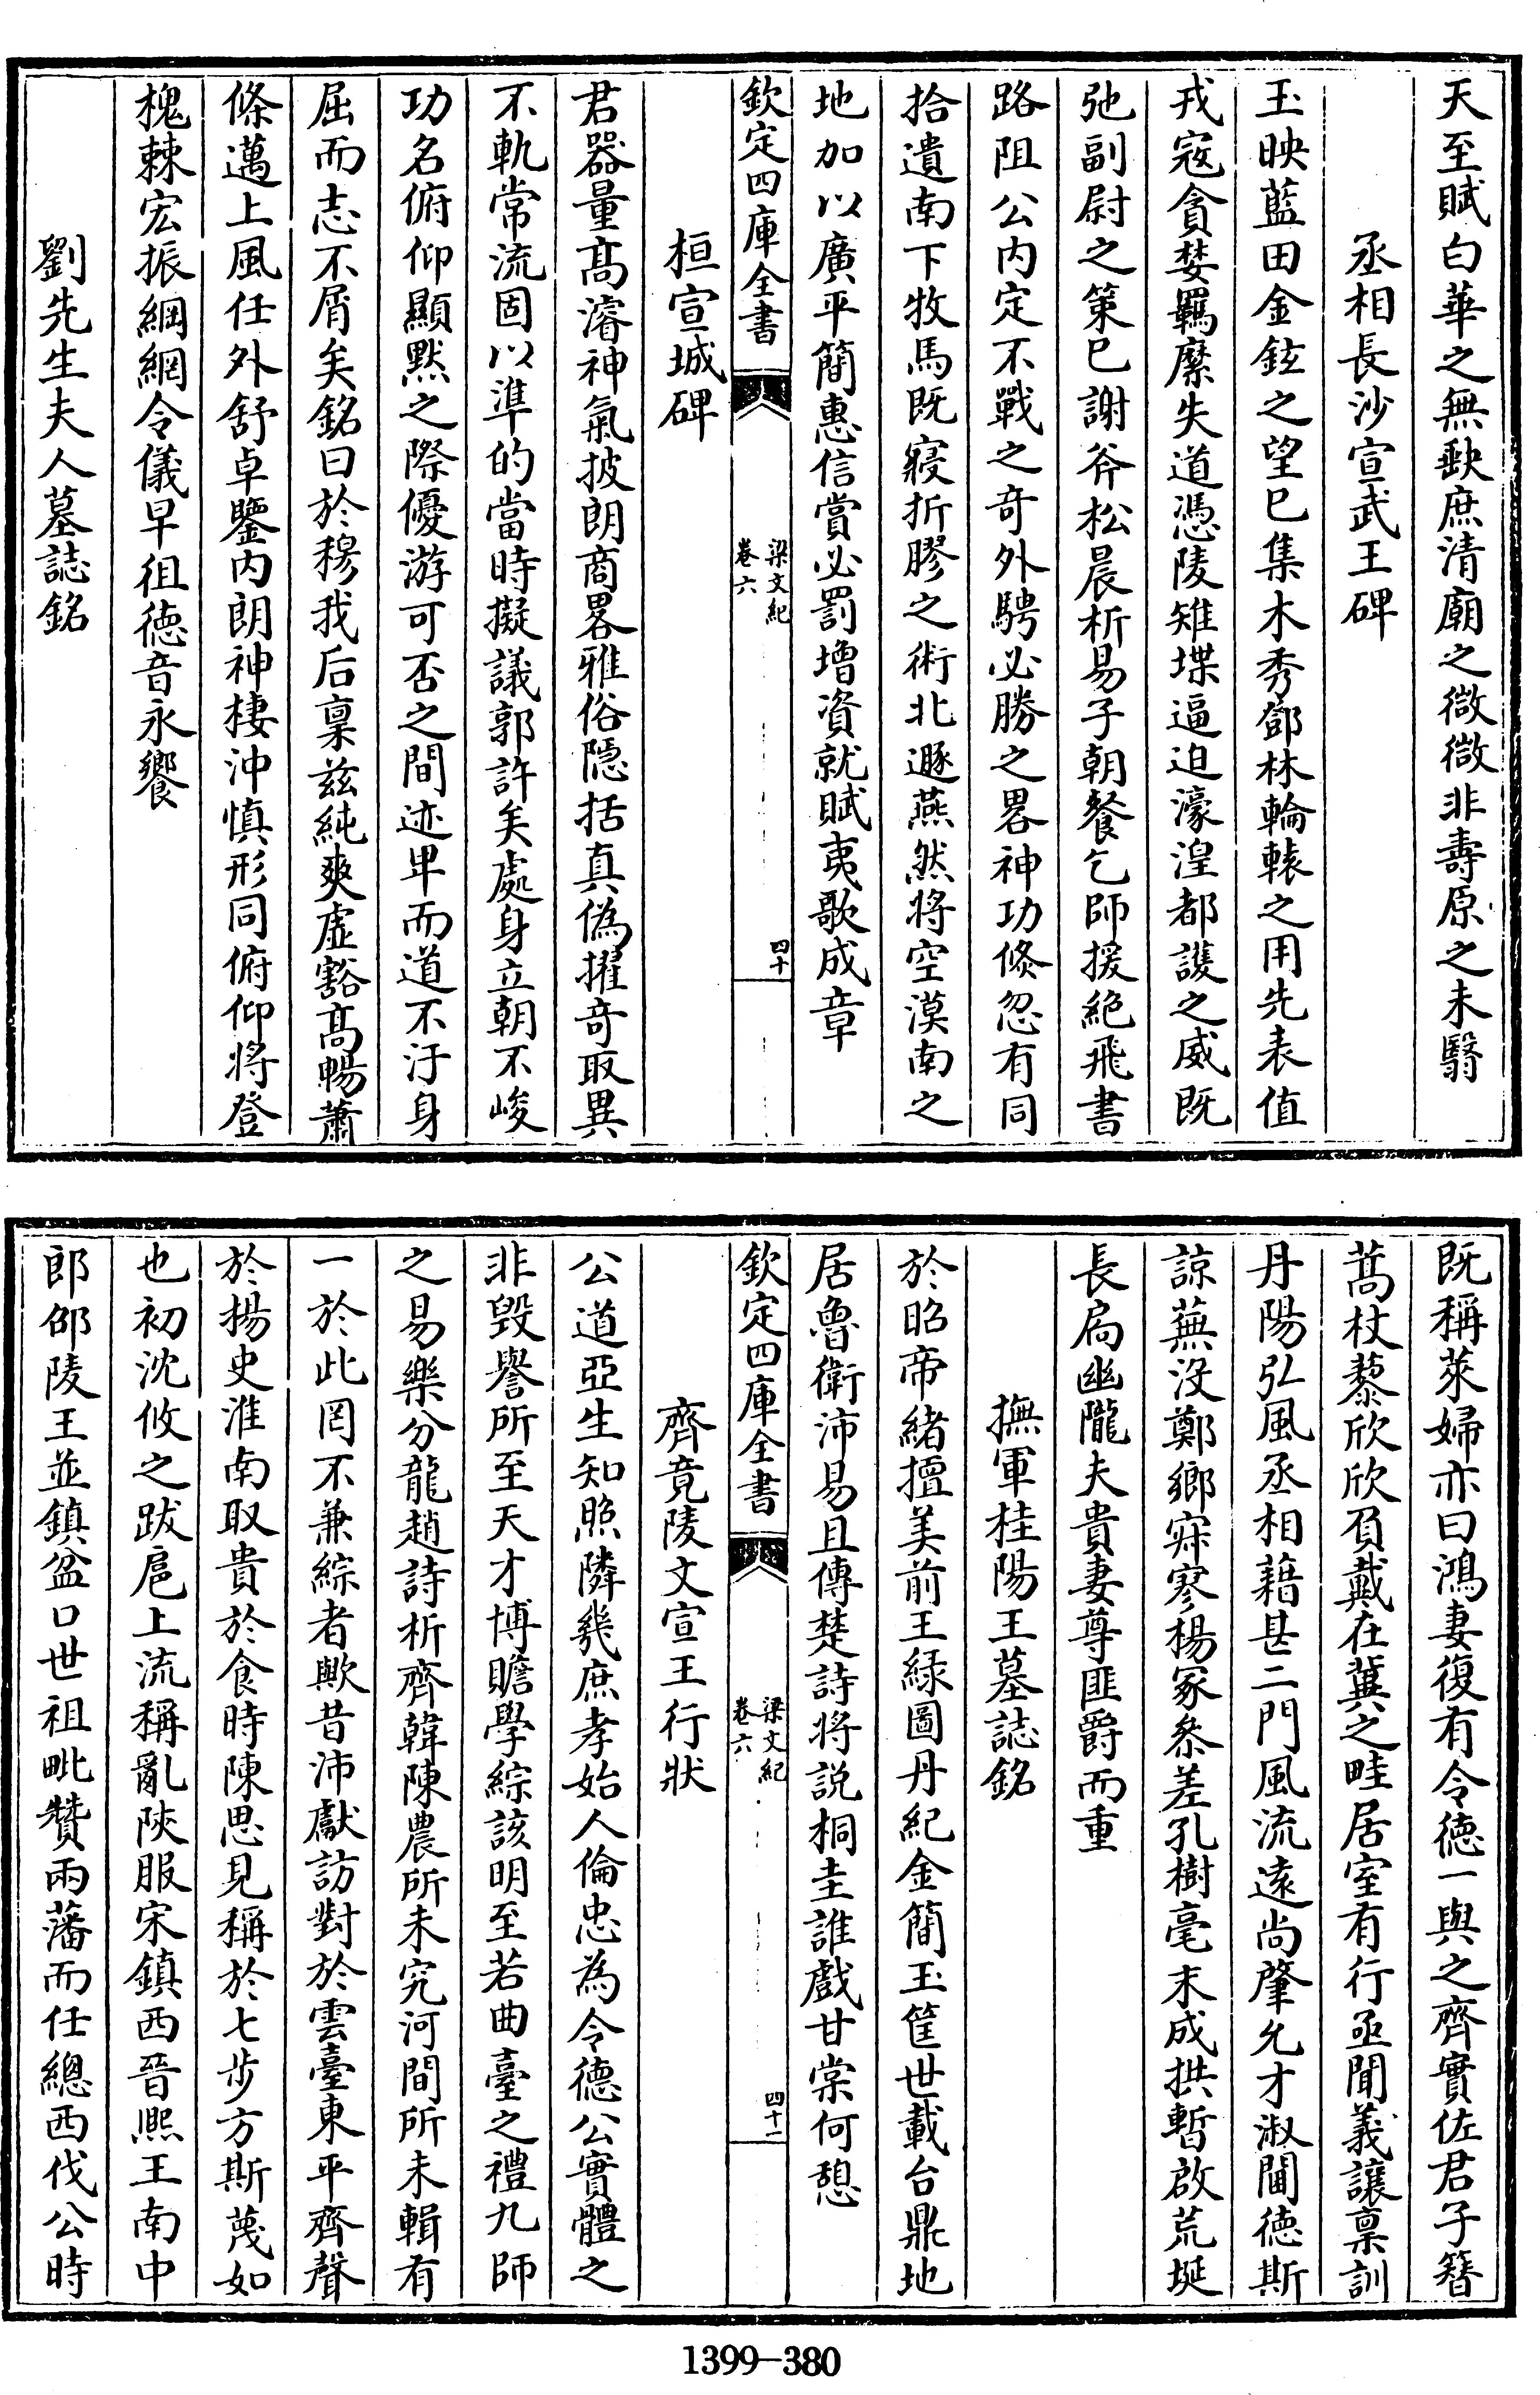 天至賦白華之無缺庶清廟之微微非壽原之未翳
丞相長沙宣武王碑
玉映藍田金鉉之望已集木秀鄧林輪轅之用先表值
戎寇貪婪羈縻失道憑陵雉堞逼迫濠湟都護之威既
弛副尉之策已謝斧松晨析易子朝餐乞師援絕飛書
路阻公內定不戰之奇外騁必勝之畧神功倐忽有同
拾遺南下牧馬既寢折膠之術北遯燕然將空漠南之
地加以廣平簡惠信賞必罰增資就賦夷歌成章
欽定四庫全書
梁文紀
卷六
四十
桓宣城碑
君器量高濬神氣披朗商畧雅俗隱括真偽擢奇取異
不軌常流固以準的當時擬議郭許矣處身立朝不峻
功名俯仰顯黙之際優游可否之間迹卑而道不汙身
屈而志不屑矣銘曰於穆我后稟兹純爽虛豁高暢蕭
條邁上風任外舒卓鑒內朗神棲沖慎形同俯仰將登
槐棘宏振綱網令儀早徂德音永饗
劉先生夫人墓誌銘
既稱萊婦亦曰鴻妻復有令德一與之齊實佐君子簪
蒿杖藜欣欣負戴在冀之畦居室有行亟聞義讓稟訓
丹陽弘風丞相藉甚二門風流遠尚肇允才淑閫德斯
諒蕪沒鄭鄉寂寥楊冢叅差孔樹毫末成拱暫啟荒埏
長扃幽隴夫貴妻尊匪爵而重
撫軍桂陽王墓誌銘
於昭帝緒擅美前王緑圖丹紀金簡玉筐世載台鼎地
居魯衛沛易且傳楚詩將説桐圭誰戲甘棠何憩
欽定四庫全書
梁文紀
卷六
四十一
齊竟陵文宣王行狀
公道亞生知照隣幾庶孝始人倫忠為令德公實體之
非毀譽所至天才博贍學綜該明至若曲臺之禮九師
之易樂分龍趙詩析齊韓陳農所未究河間所未輯有
一於此罔不兼綜者歟昔沛獻訪對於雲臺東平齊聲
於揚史淮南取貴於食時陳思見稱於七步方斯蔑如
也初沈攸之跋扈上流稱亂陜服宋鎮西晉熈王南中
郎邵陵王並鎮盆口世祖毗贊兩藩而任總西伐公時
1399—380